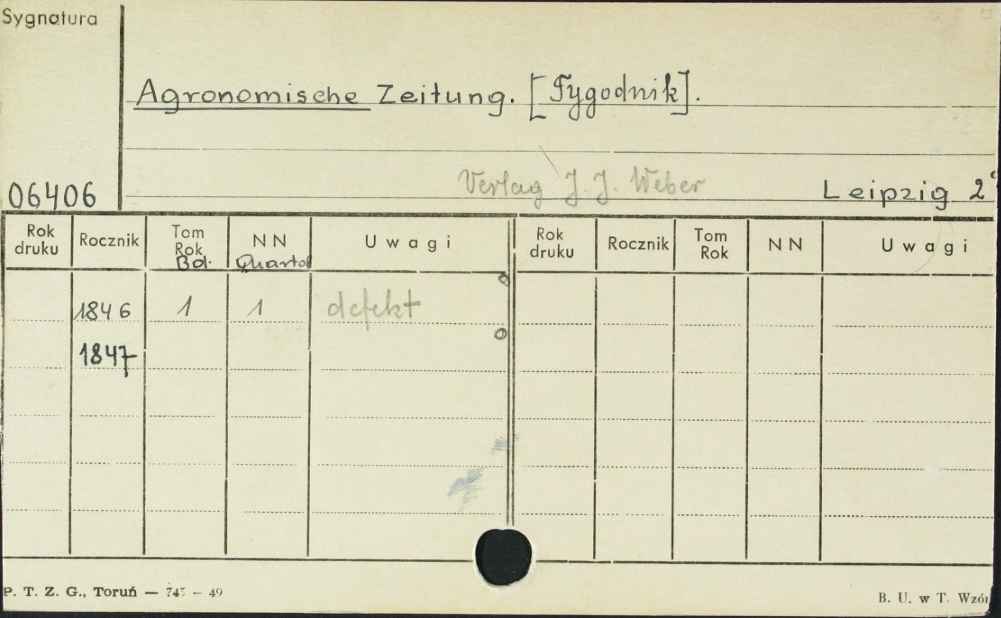 Sygnatura
Agronomische Zeitung. [Tygodnik].
Verlag J. J. Weber Leipzig 2°
06406
Rok druku Rocznik Tom Rok Bd. NN Quarto Uwagi Rok druku Rocznik Tom Rok NN Uwagi
1846 1 1 defekt
1847
P. T. Z. G., Toruń — 745 — 49 B. U. w T. Wzór